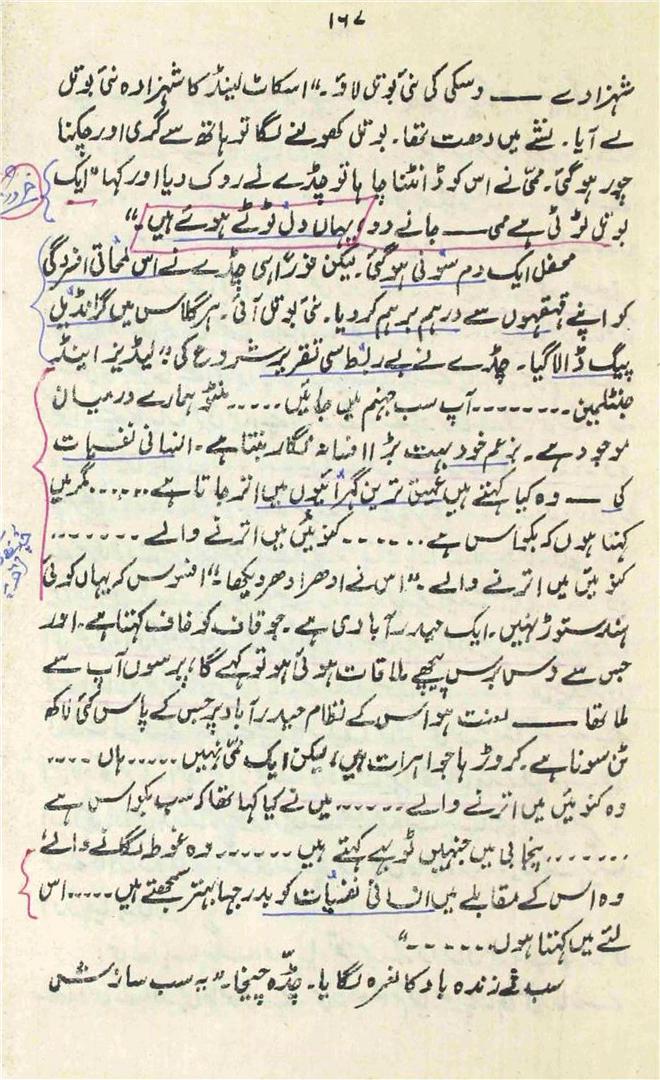 ۱۶۷
شہزادے —— وسکی کی نئی بوتل لاؤ۔“ اسکاٹ لینڈ کا شہزادہ نئی بوتل
لے آیا۔ نشے میں دھت تھا۔ بوتل کھولنے لگا تو ہاتھ سے گری اور چکنا
چور ہو گئی۔ ممی نے اس کو ڈانٹنا چاہا تو چڈے نے روک دیا اور کہا ”ایک
بوتل ٹوٹی ہے ممی —— جانے دو، یہاں دل ٹوٹے ہوئے ہیں۔“
محفل ایک دم سونی ہو گئی۔ لیکن فوراً ہی چڈے نے اس لمحاتی افسردگی
کو اپنے قہقہوں سے درہم برہم کر دیا۔ نئی بوتل آئی۔ ہر گلاس میں گرانڈیل
پیگ ڈالا گیا۔ چڈے نے بے ربط سی تقریر شروع کی ”لیڈیز اینڈ
جنٹلمین ........ آپ سب جہنم میں جائیں ..... منٹو ہمارے درمیان
موجود ہے۔ بزعم خود بہت بڑا افسانہ نگار بنتا ہے۔ انسانی نفسیات
کی —— وہ کیا کہتے ہیں عمیق ترین گہرائیوں میں اتر جاتا ہے ...... مگر میں
کہتا ہوں کہ بکواس ہے ...... کنوئیں میں اترنے والے .......
کنوئیں میں اترنے والے۔“ اس نے ادھر ادھر دیکھا۔ ”افسوس کہ یہاں کوئی
ہندستوڑ نہیں۔ ایک حیدرآبادی ہے۔ جو قاف کو خاف کہتا ہے۔ اور
جس سے دس برس پیچھے ملاقات ہوئی ہو تو کہے گا، پرسوں آپ سے
ملا تھا —— لعنت ہو اس کے نظام حیدرآباد پر جس کے پاس کئی لاکھ
ٹن سونا ہے۔ کروڑ ہا جواہرات ہیں، لیکن ایک ممی نہیں ..... ہاں ....
وہ کنوئیں میں اترنے والے ...... میں نے کیا کہا تھا کہ سب بکواس ہے
....... پنجابی میں جنہیں ٹوبہے کہتے ہیں ...... وہ غوطہ لگانے والے،
وہ اس کے مقابلے میں انسانی نفسیات کو بدرجہا بہتر سمجھتے ہیں ..... اس
لئے میں کہتا ہوں ......“
سب نے زندہ باد کا نعرہ لگایا۔ چڈہ چیخا۔ ”یہ سب سازشی